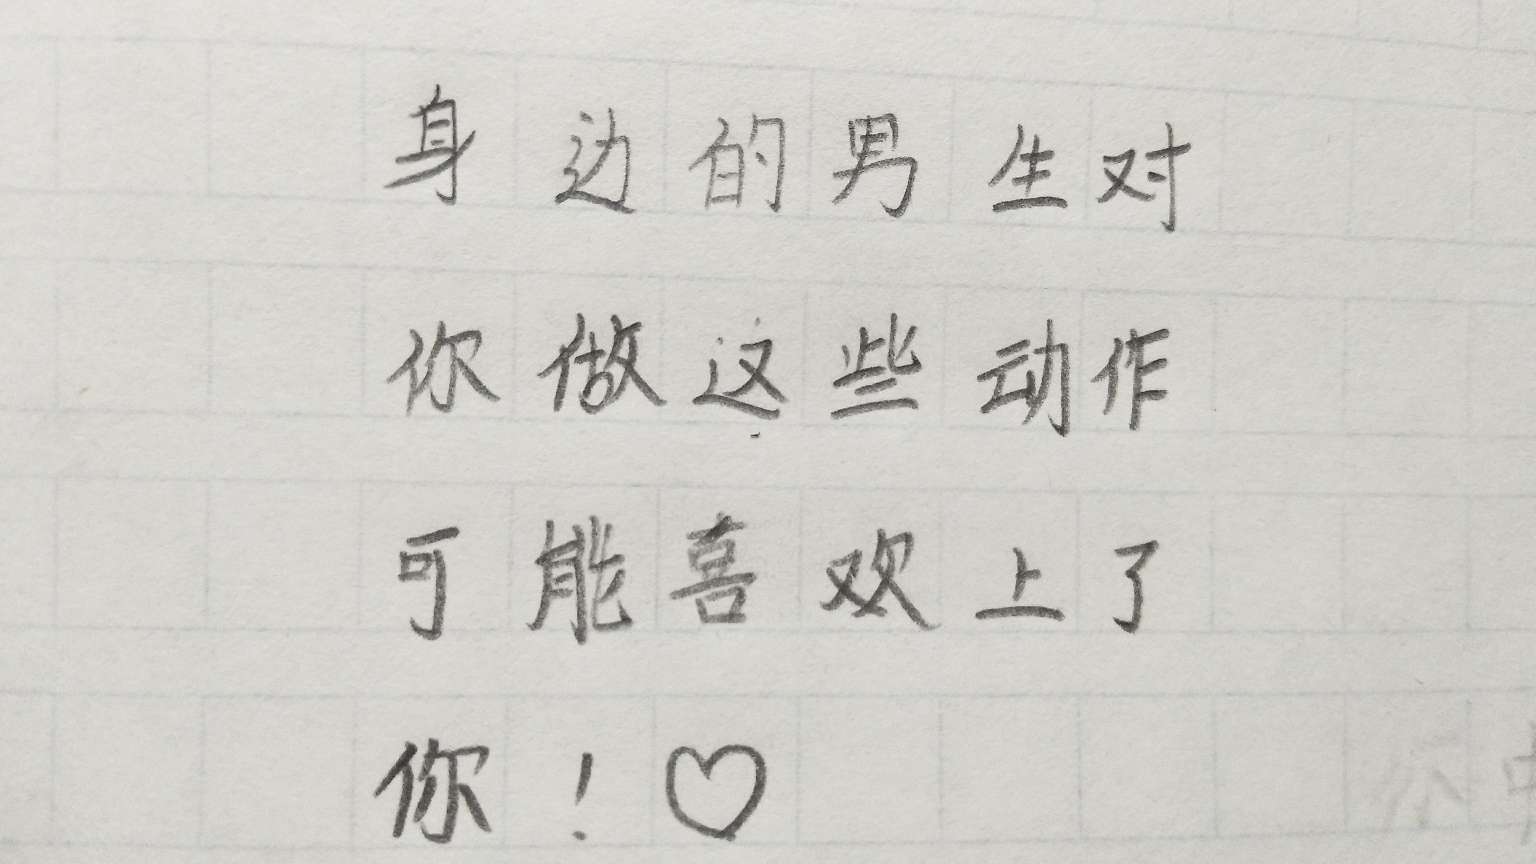 身边的男生对
你做这些动作
可能喜欢上了
你！♡